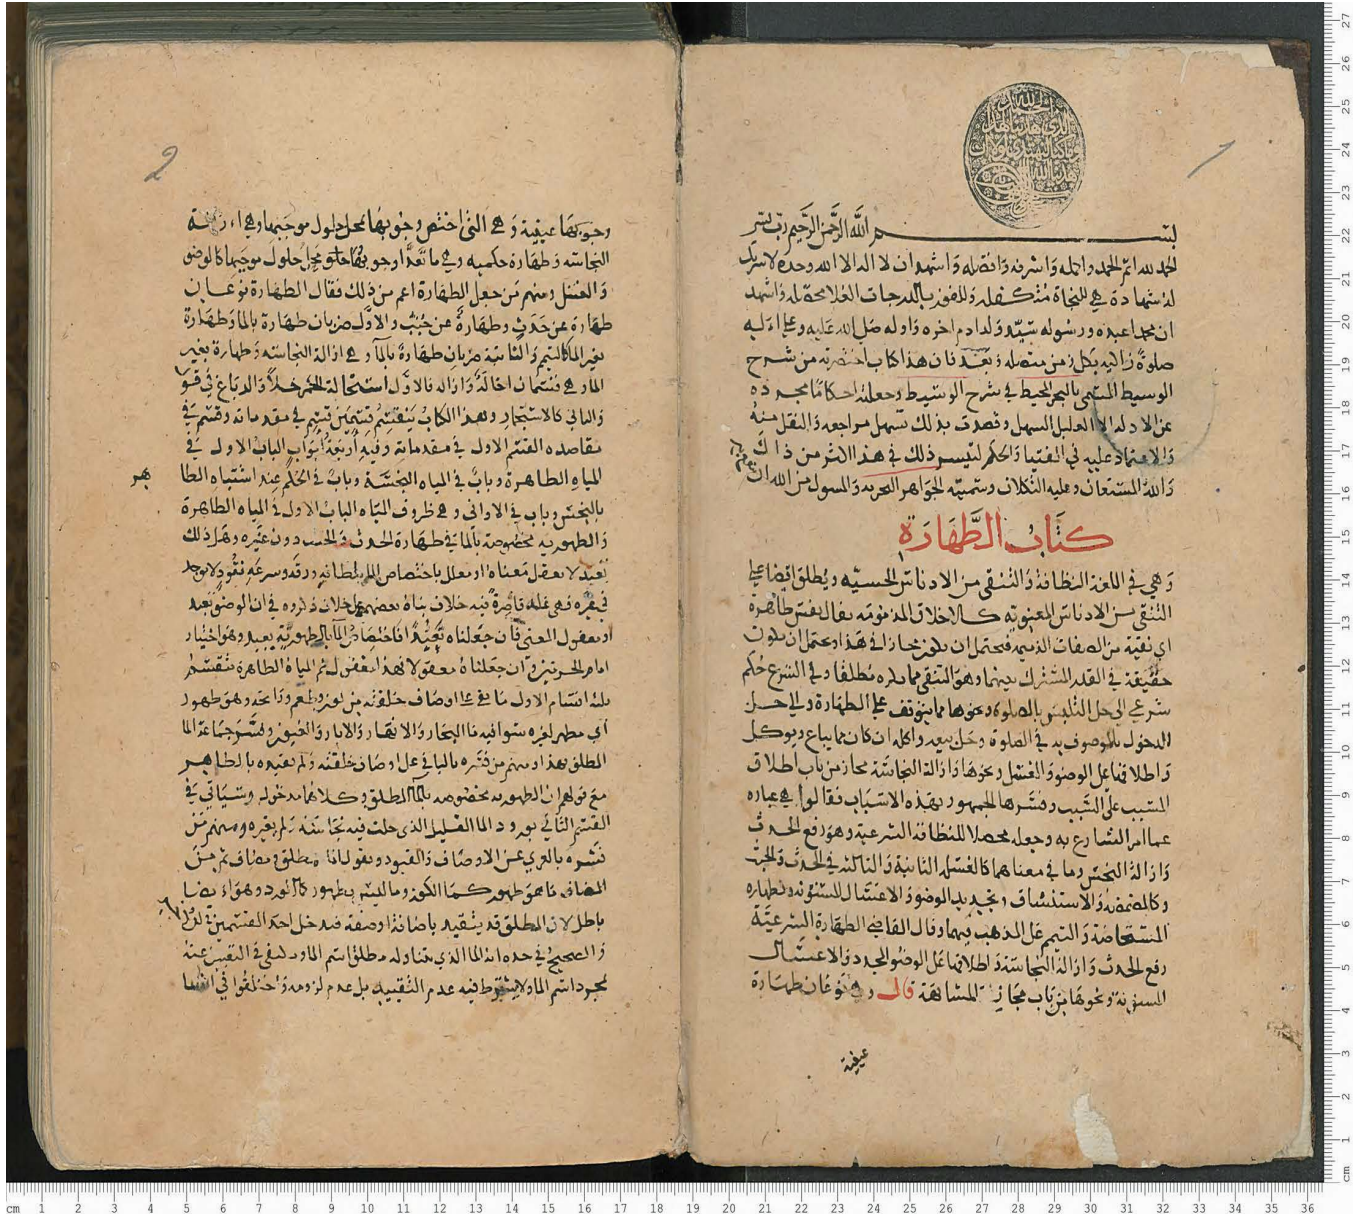 بسم الله الرحمن الرحيم رب يسر
الحمد لله اتم الحمد واكمله واشرفه وافضله واشهد ان لا اله الا الله وحده لا شريك
له شهادة هي للنجاة متكفله وللفوز بالدرجات العلا محصله واشهد
ان محمدا عبده ورسوله سيد ولد ادم اخره واوله صلى الله عليه وعلى اله
صلوة زاكيه بكل زمن متصله وبعد فان هذا كتاب اختصرته من شرح
الوسيط المسمى بالبحر المحيط في شرح الوسيط وجعلته احكاما مجرده
عن الادله الا القليل السهل وقصدت بذلك تسهيل مراجعه والنقل منه
والاعتماد عليه في الفتيا والحكم لتيسر ذلك في هذا اكثر من ذاك
والله المستعان وعليه التكلان وسميته الجواهر البحريه والمسول من الله ان
كتاب الطهارة
وهي في اللغة النظافة والتنقي من الادناس الحسيه ويطلق ايضا على
التنقي من الادناس المعنويه كالاخلاق المذمومه يقال نفس طاهرة
اي نقية من الصفات الذميمه فيحتمل ان يكون مجازا في هذا ويحتمل ان يكون
حقيقة في القدر المشترك بينهما وهو التنقي مما يكره مطلقا وفي الشرع حكم
شرعي الى حل التلبس بالصلوة ونحوها مما يتوقف على الطهارة والى حل
الدخول بالموصوف به في الصلوة وحل بيعه واكله ان كان مما يباع ويوكل
واطلاقها على الوضو والغسل ونحوها وازالة النجاسة مجاز من باب اطلاق
المسبب على السبب وفسرها الجمهور بهذه الاسباب فقالوا هي عباره
عما امر الشارع به وجعله محصلا للنظافة الشرعية وهو رفع الحدث
وازالة النجس وما في معناهما كالغسلة الثانية والثالثة في الحدث والخبث
وكالمضمضة والاستنشاق وتجديد الوضو والاغتسال المسنونه وطهاره
المستحاضة والتيمم على المذهب فيهما وقال القاضي الطهارة الشرعية
رفع الحدث وازالة النجاسة واطلاقها على الوضو المجدد والاغتسال
المسنونة ونحوها من باب مجاز المشابهة قال وهي نوعان طهارة
عينية
وجوبها عينية وهي التي اختص وجوبها بمحل حلول موجبها وهي ازالة
النجاسه وطهارة حكميه وهي ما تعدا وجوبها محل حلول موجبها كالوضو
والغسل ومنهم من جعل الطهارة اعم من ذلك فقال الطهارة نوعان
طهارة عن حدث وطهارة عن خبث والاول ضربان طهارة بالما وطهارة
بغير الما كالتيمم والثانية ضربان طهارة بالما وهي ازالة النجاسه وطهارة بغير
الما وهي قسمان احالة وازاله فالاول استحالة الخمر خلا والدباغ
والثاني كالاستجمار وهذا الكتاب ينقسم قسمين قسم في مقدماته وقسم في
مقاصده القسم الاول في مقدماته وفيه اربعة ابواب الباب الاول في
المياه الطاهرة وباب في المياه النجسة وباب في الحكم عند اشتباه الطا
هر
بالنجس وباب في الاواني وهي ظروف المياه الباب الاول في المياه الطاهرة
والطهوريه مخصوصة بالما في طهارة الحدث والخبث دون غيره وهل ذلك
تعبد لا يعقل معناه او يعلل باختصاص الما بلطافه ورقه وسرعه نفود لا يوجد
في غيره فهي علة قاصرة فيه خلاف بناه بعضهم على خلاف ذكروه في ان الوضو تعبد
او معقول المعنى فان جعلناه تعبدا فاختصاص الما بالطهورية تعبد وهو اختيار
امام الحرمين وان جعلناه معقولا فهذا معقول ثم المياه الطاهرة تنقسم
ثلثة اقسام الاول ما بقي على اوصاف خلقته من لون وطعم ورائحه وهو طهور
اي مطهر لغيره سوا فيه ما البحار والانهار والابار والعيون وفسر جماعة الما
المطلق بهذا ومنهم من فسره بالباقي على اوصاف خلقته ولم يقيده بالطاهر
مع قولهم ان الطهوريه مخصوصه بالما المطلق وكلاهما مدخول وسياتي في
القسم الثاني بورود الما القليل الذي حلت فيه نجاسة ولم يغيره ومنهم من
فسره بالعري عن الاوصاف والقيود ويقول الما مطلق ومضاف ثم من
المضاف ما هو طهور كما الكوز وما ليس بطهور كما الورد وهو ايضا
باطل لان المطلق قد يتقيد باضافة او صفة فيدخل احد القسمين في الاخر
والصحيح في حده انه الما الذي يتناوله مطلق اسم الما ويكفي في التعبير عنه
مجرد اسم الما ولا يشترط فيه عدم التقييد بل عدم لزومه واختلفوا في